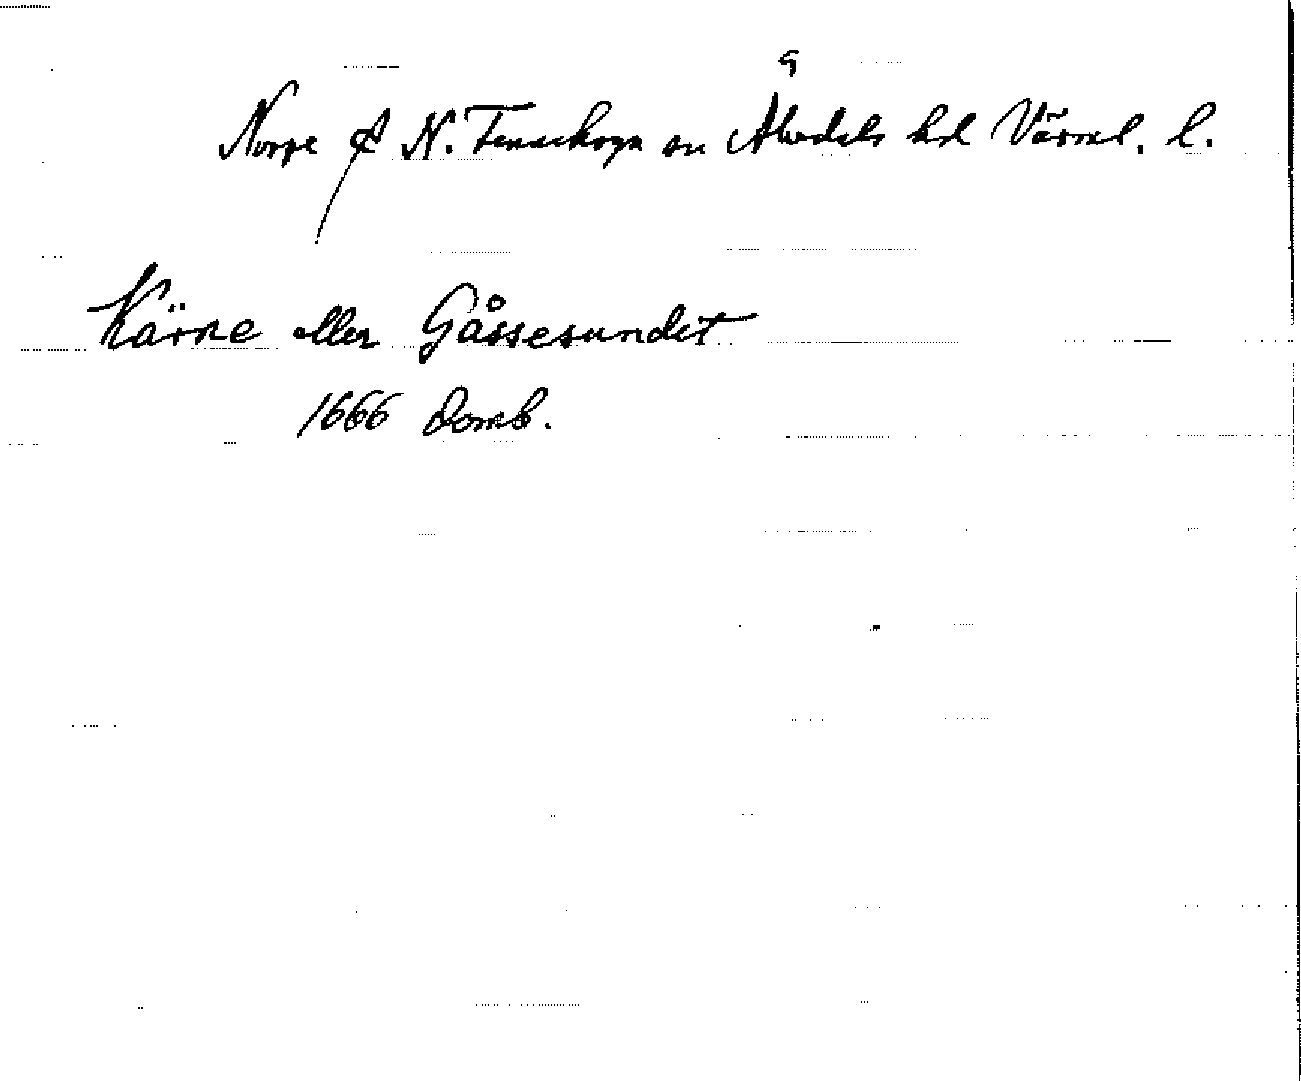 Norge & N. Finnskoga sn Älvdals hd Värml. l.
Kärne eller Gåssesundet
1666 Domb.